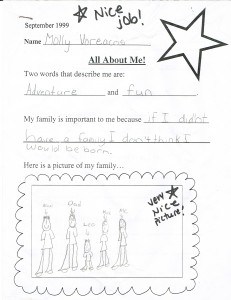 September 1999
★ Nice
job!
Name Molly
All About Me!
Two words that describe me are:
Adventure and fun.
My family is important to me because if I didn't
have a family I don't think I
would be born.
Here is a picture of my family…
Dad
very
Nice
picture!